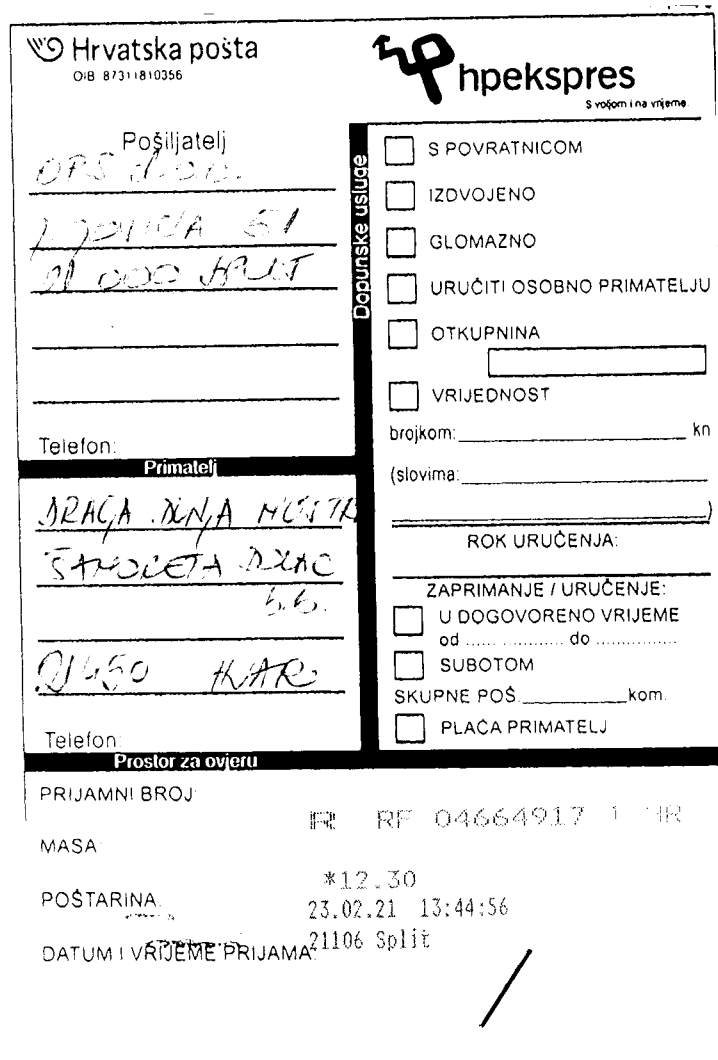 Hrvatska pošta
OIB 87311810356
hpekspres
S voljom i na vrijeme.
Pošiljatelj
d.o.o.
51
21 000 SPLIT
Telefon:
Primatelj
DRAGA DUNJA
DOLAC
b.b.
21450 HVAR
Telefon:
Dopunske usluge
S POVRATNICOM
IZDVOJENO
GLOMAZNO
URUČITI OSOBNO PRIMATELJU
OTKUPNINA
VRIJEDNOST
brojkom: kn
(slovima:
)
ROK URUČENJA:
ZAPRIMANJE / URUČENJE:
U DOGOVORENO VRIJEME
od ...... ................ do ................
SUBOTOM
SKUPNE POŠ. kom.
PLAĆA PRIMATELJ
Prostor za ovjeru
PRIJAMNI BROJ:
R RF 04664917 1 HR
MASA:
*12.30
POŠTARINA:
23.02.21 13:44:56
DATUM I VRIJEME PRIJAMA:
21106 Split